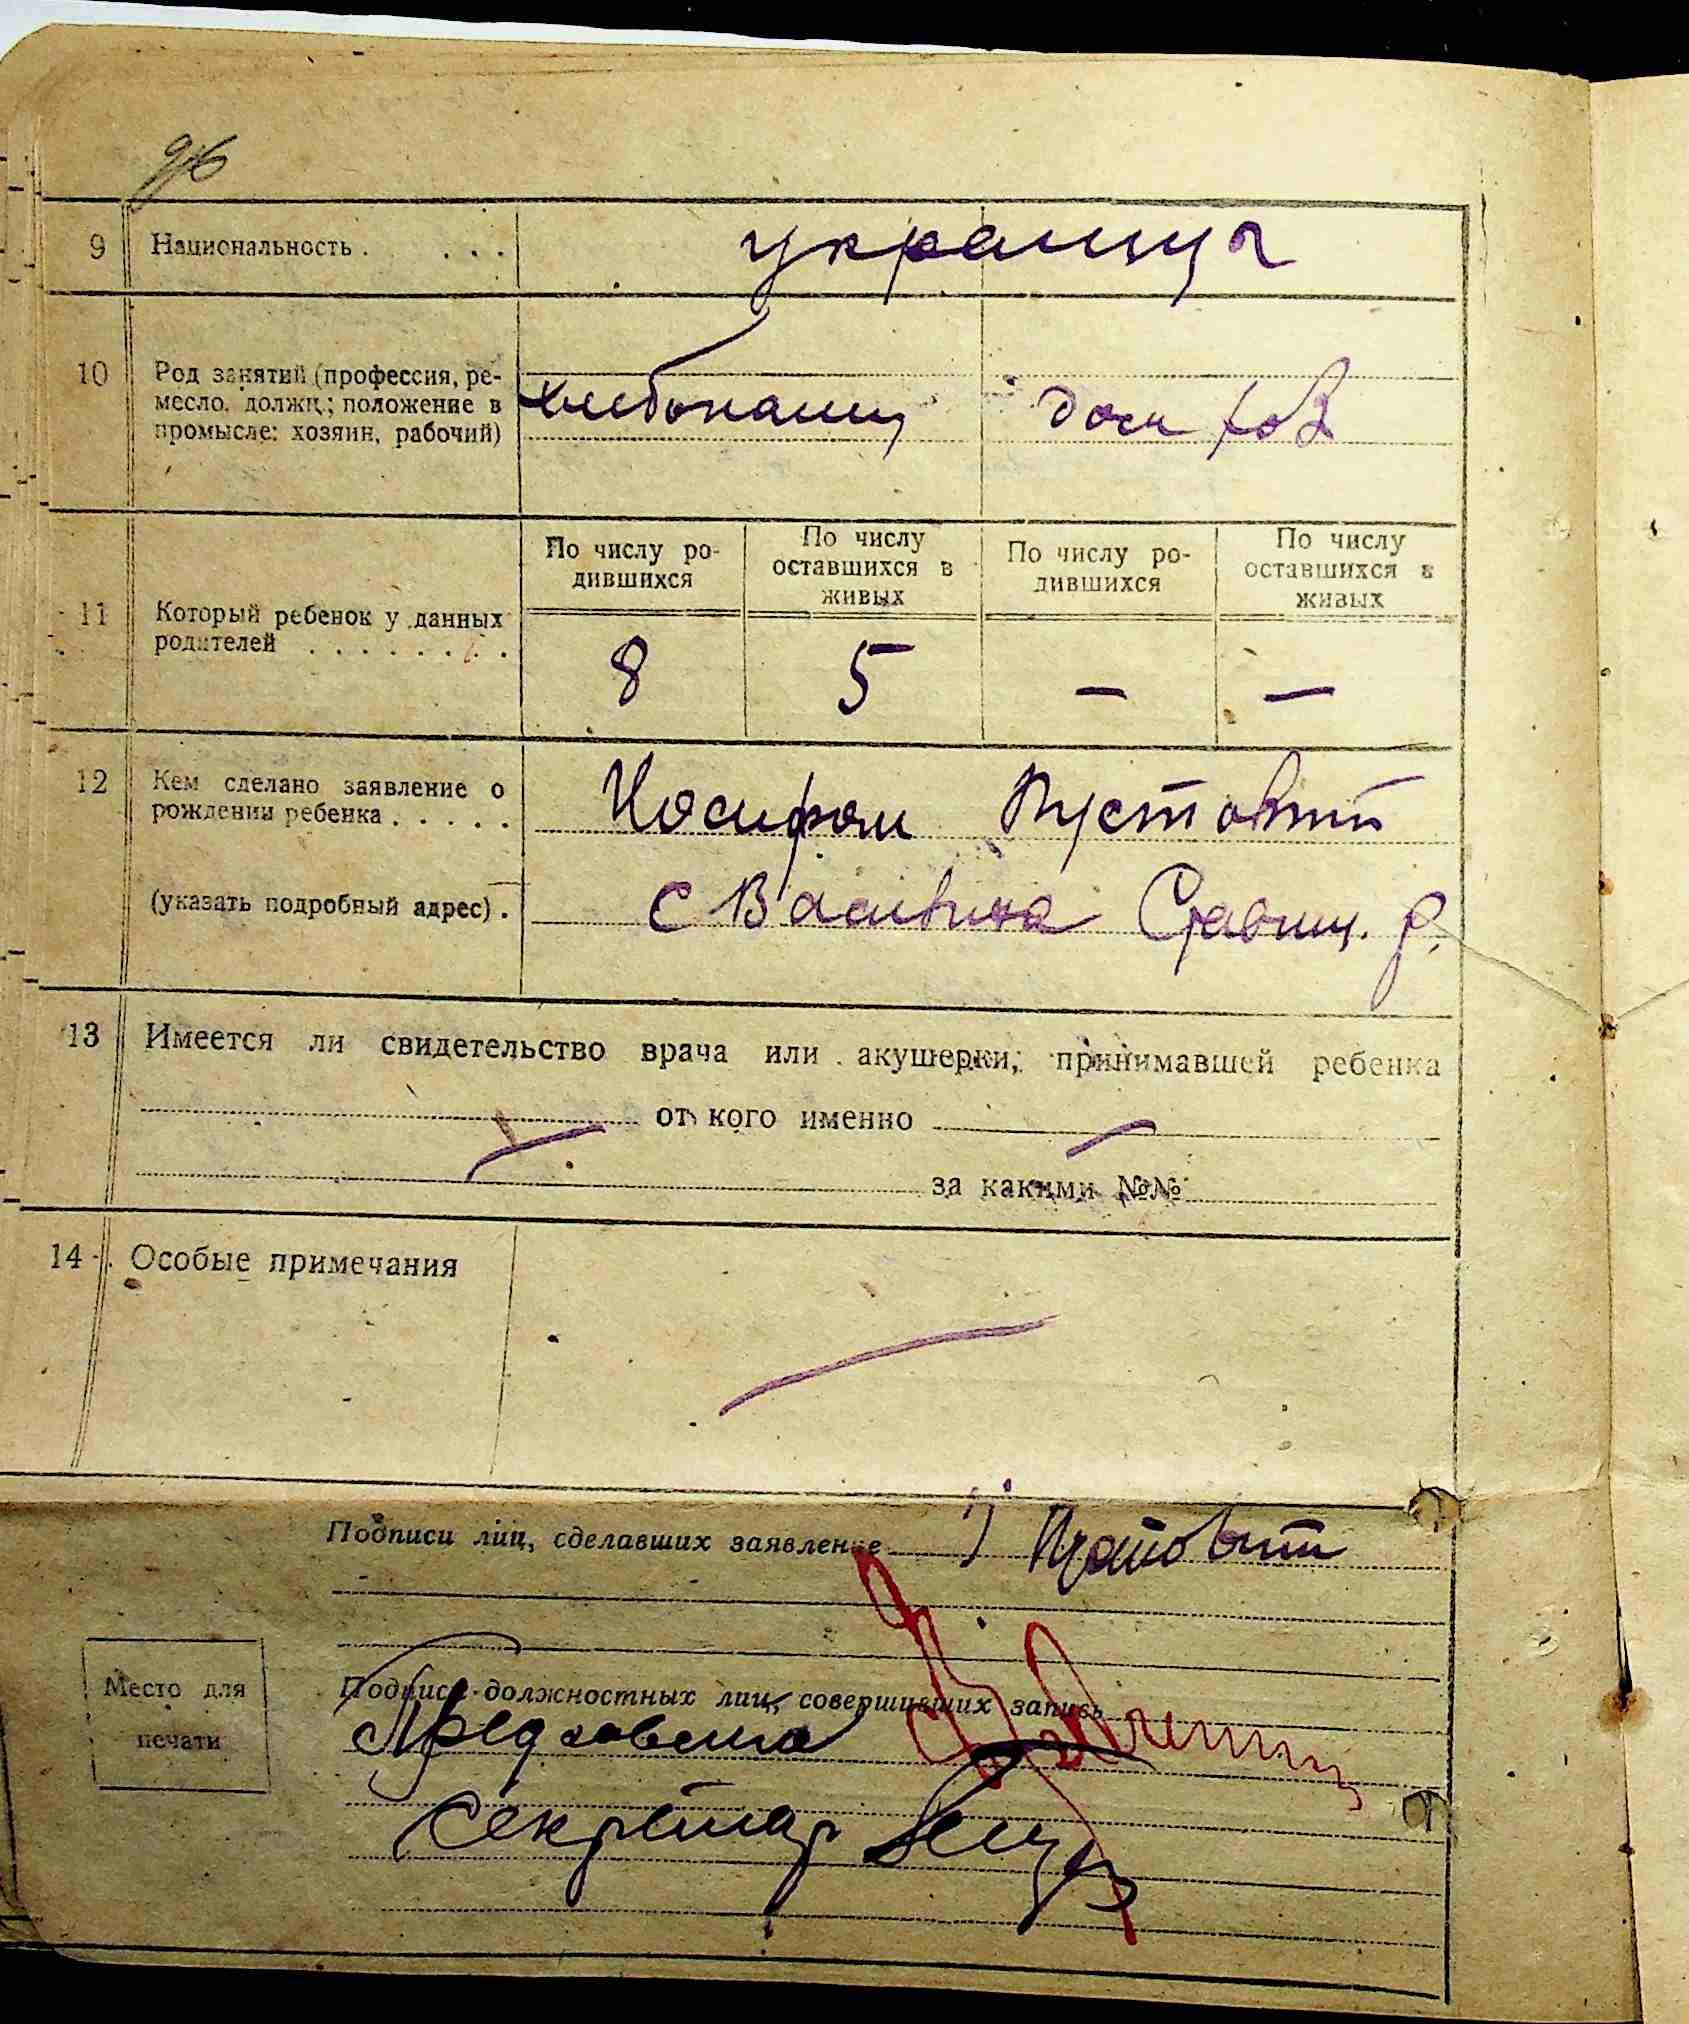 96
9 Национальность . . . . украинцы
10 Род занятий (профессия, ре-
месло, должн.; положение в
промысле: хозяин, рабочий)
хлебопашец дом хоз
11 Который ребенок у данных
родителей . . . . . . . .
По числу ро-
дившихся
По числу
оставшихся в
живых
По числу ро-
дившихся
По числу
оставшихся в
живых
8 5 — —
12 Кем сделано заявление о
рождении ребенка . . . . .
Иосифом Пустовит
(указать подробный адрес) .
с Василиха Ставищ. р.
13 Имеется ли свидетельство врача или акушерки, принимавшей ребенка
от кого именно
за какими №№
14 Особые примечания
Подписи лиц, сделавших заявление 1) Пустовит
Подписи должностных лиц, совершивших запись
Место для
печати
Пред
Секретар